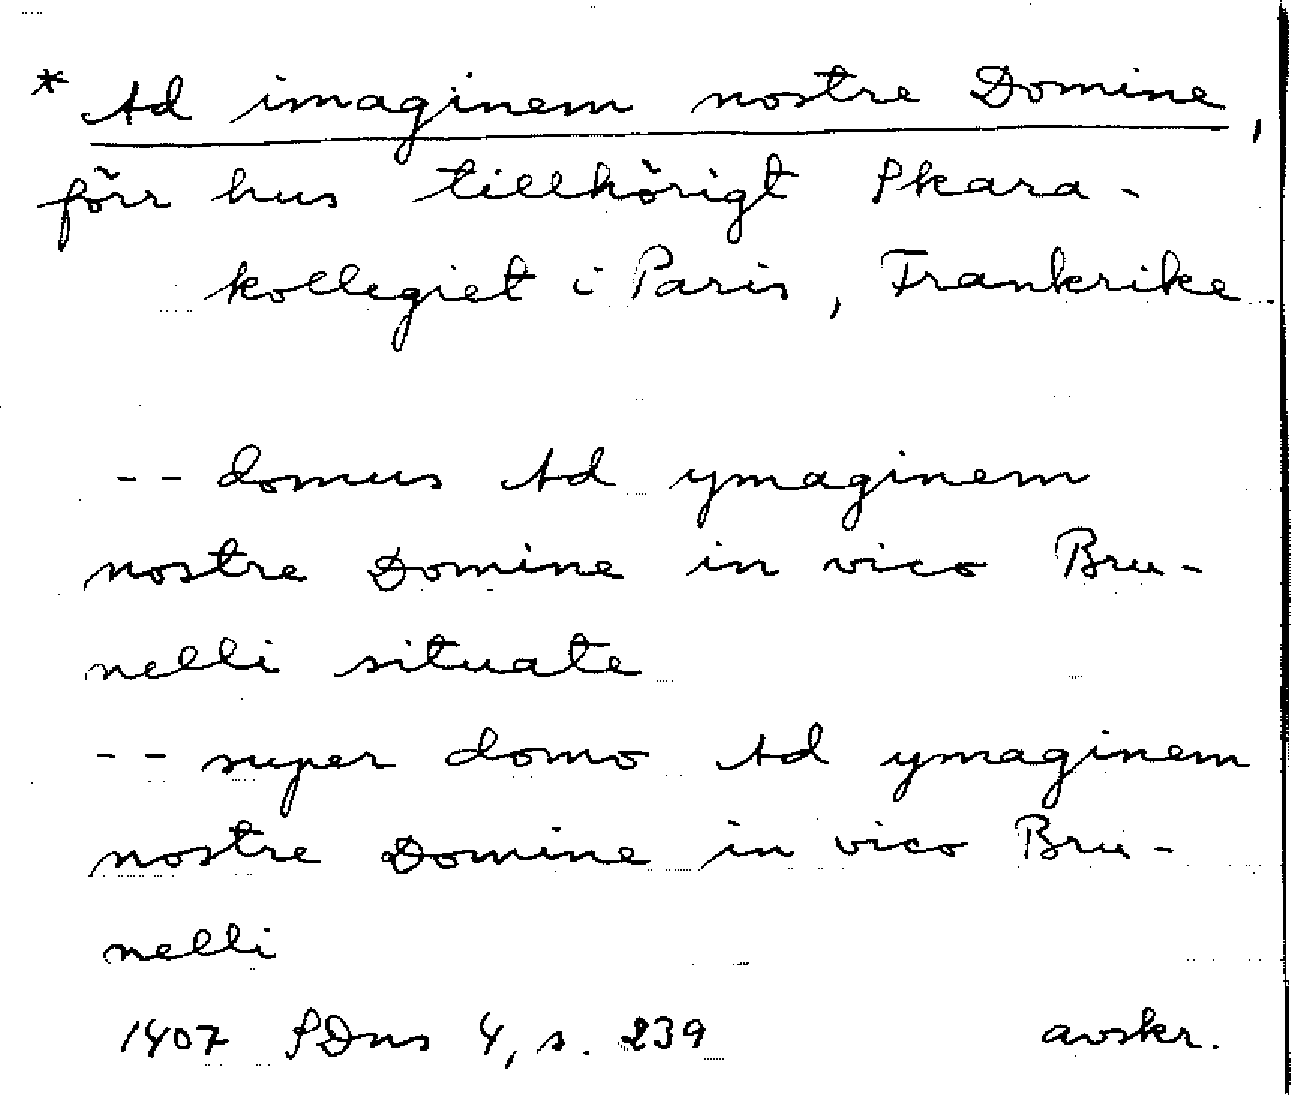 * Ad imaginem nostre Domine,
förr hus tillhörigt Skara-
kollegiet i Paris, Frankrike
-- domus Ad ymaginem
nostre Domine in vico Bru-
nelli situate
-- super domo Ad ymaginem
nostre Domine in vico Bru-
nelli
1407 SDns 4, s. 239 avskr.